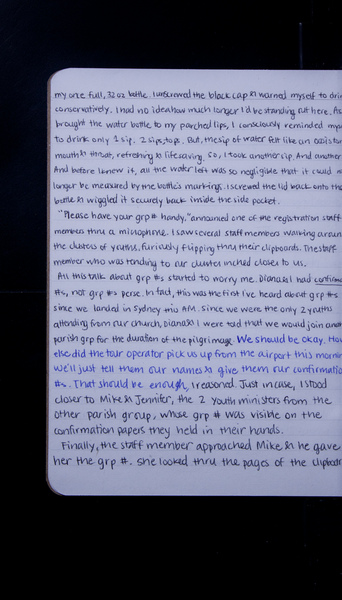 my one full, 32 oz bottle. I unscrewed the black cap & warned myself to drink
conservatively. I had no idea how much longer I'd be standing out here. As
brought the water bottle to my parched lips, I consciously reminded my
to drink only 1 sip. 2 sips, tops. But, the sip of water felt like an oasis to
mouth & throat, refreshing & life saving. So, I took another sip. And another
And before I knew it, all the water left was so negligible that it could no
longer be measured by the bottle's markings. I screwed the lid back onto the
bottle & wiggled it securely back inside the side pocket.
"Please have your grp # handy," announced one of the registration staff
members thru a microphone. I saw several staff members walking aroun
the clusters of youths, furiously flipping thru their clipboards. The staff
member who was tending to our cluster inched closer to us.
All this talk about grp #s started to worry me. Diana & I had confirma
#s, not grp #s perse. In fact, this was the first I've heard about grp #s
since we landed in Sydney this AM. Since we were the only 2 youths
attending from our church, Diana & I were told that we would join ano
parish grp for the duration of the pilgrimage. We should be okay. How
else did the tour operator pick us up from the airport this mornin
we'll just tell them our names & give them our confirmatio
#s. That should be enough, I reasoned. Just in case, I stood
closer to Mike & Jennifer, the 2 youth ministers from the
other parish group, whose grp # was visible on the
confirmation papers they held in their hands.
Finally, the staff member approached Mike & he gave
her the grp #. She looked thru the pages of the clipboar